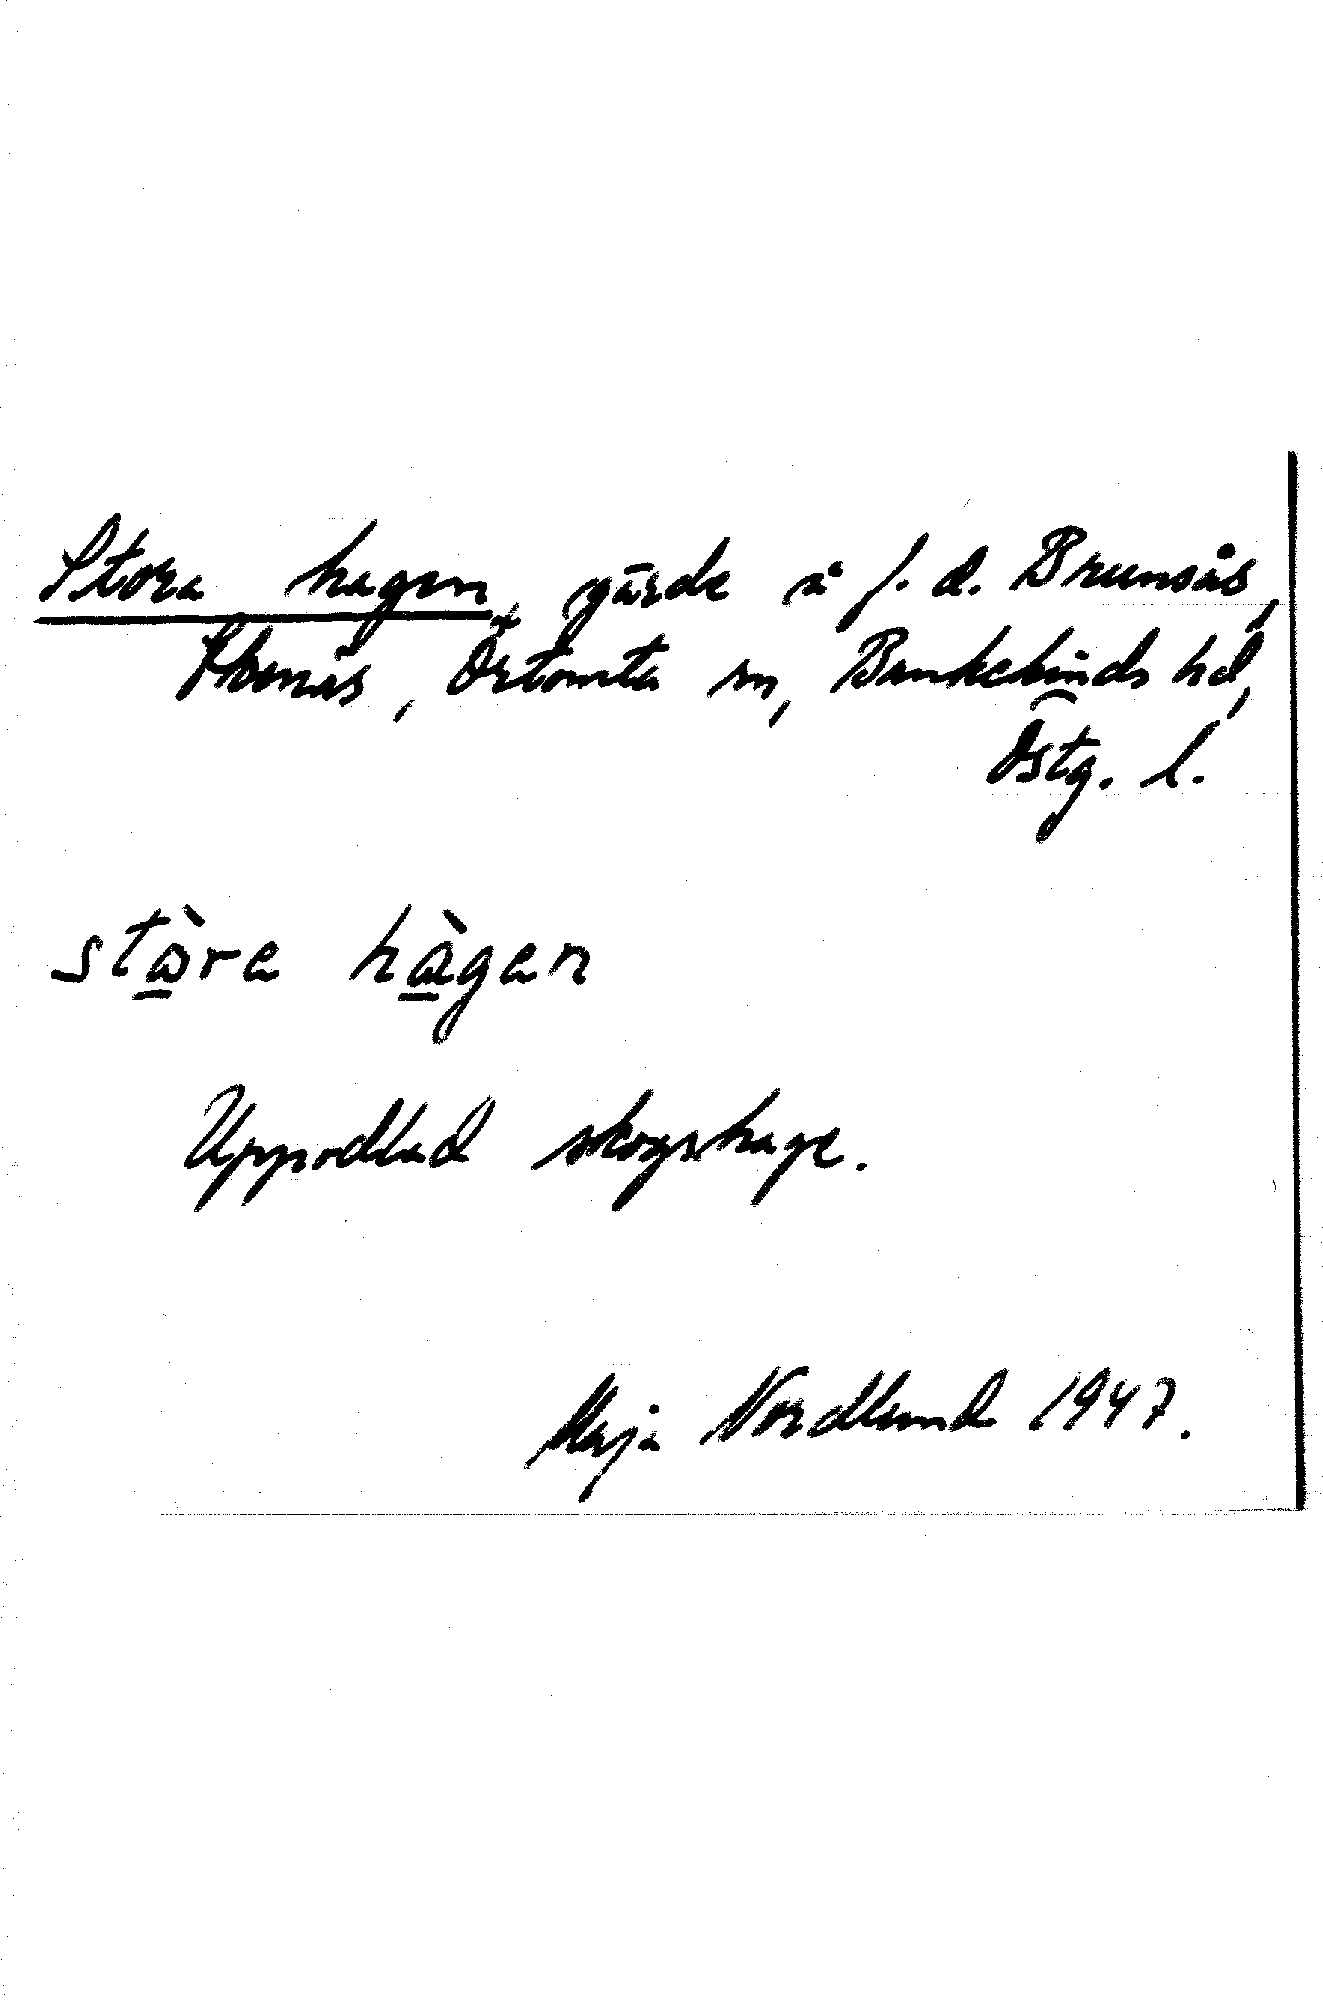 Stora hagen, gärde å f. d. Brunsås,
Stenäs, Örtomta sn, Bankekinds hd,
Östg. l.
stòra hàgen
Uppodlad skogshage.
Maja Nordlund 1947.